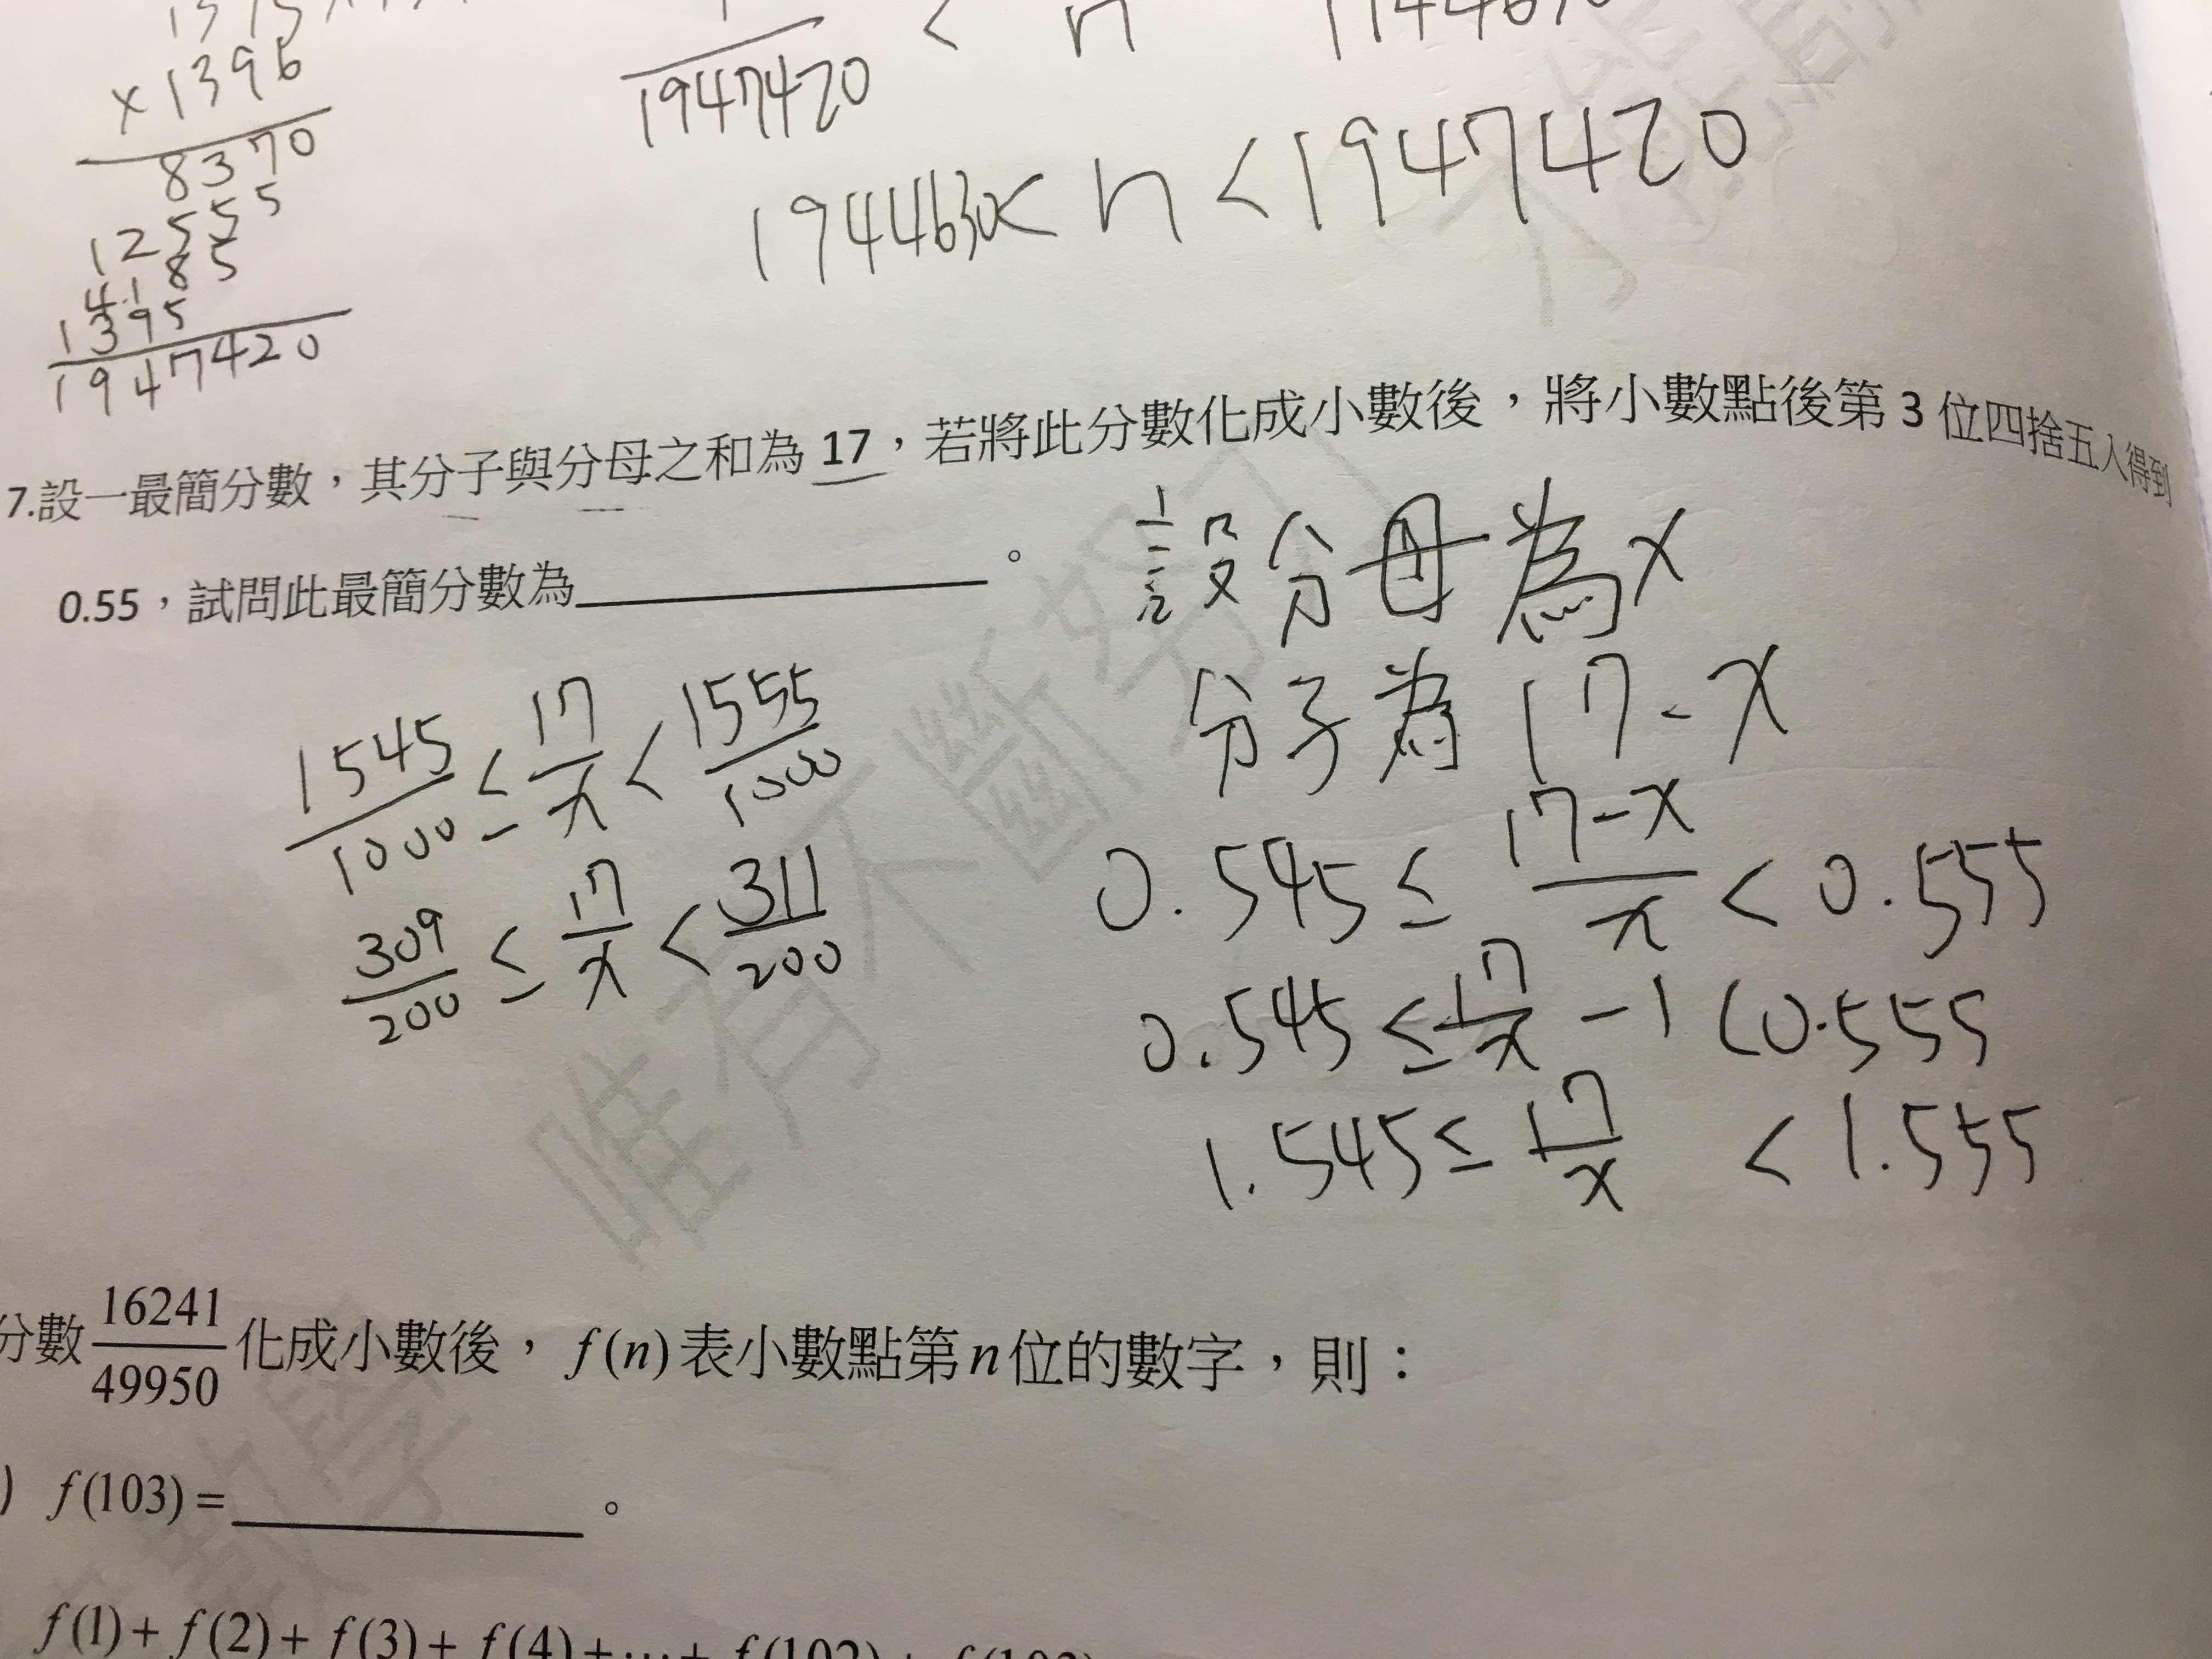 × 1396
8370
12555
4185
1395
1947420
1947420
< n
1944630 < n < 1947420
7.設一最簡分數，其分子與分母之和為 17，若將此分數化成小數後，將小數點後第 3 位四捨五入得到
0.55，試問此最簡分數為＿＿＿＿＿＿。
設分母為x
分子為 17-x
0.545 ≤ 17-x/x < 0.555
0.545 ≤ 17/x - 1 < 0.555
1.545 ≤ 17/x < 1.555
1545/1000 ≤ 17/x < 1555/1000
309/200 ≤ 17/x < 311/200
分數 16241/49950 化成小數後，f(n) 表小數點第 n 位的數字，則：
) f(103) = ＿＿＿＿＿＿。
f(1) + f(2) + f(3) + f(4) + ⋯ + f(102) + f(103)
唯有不斷努力
才能
數學